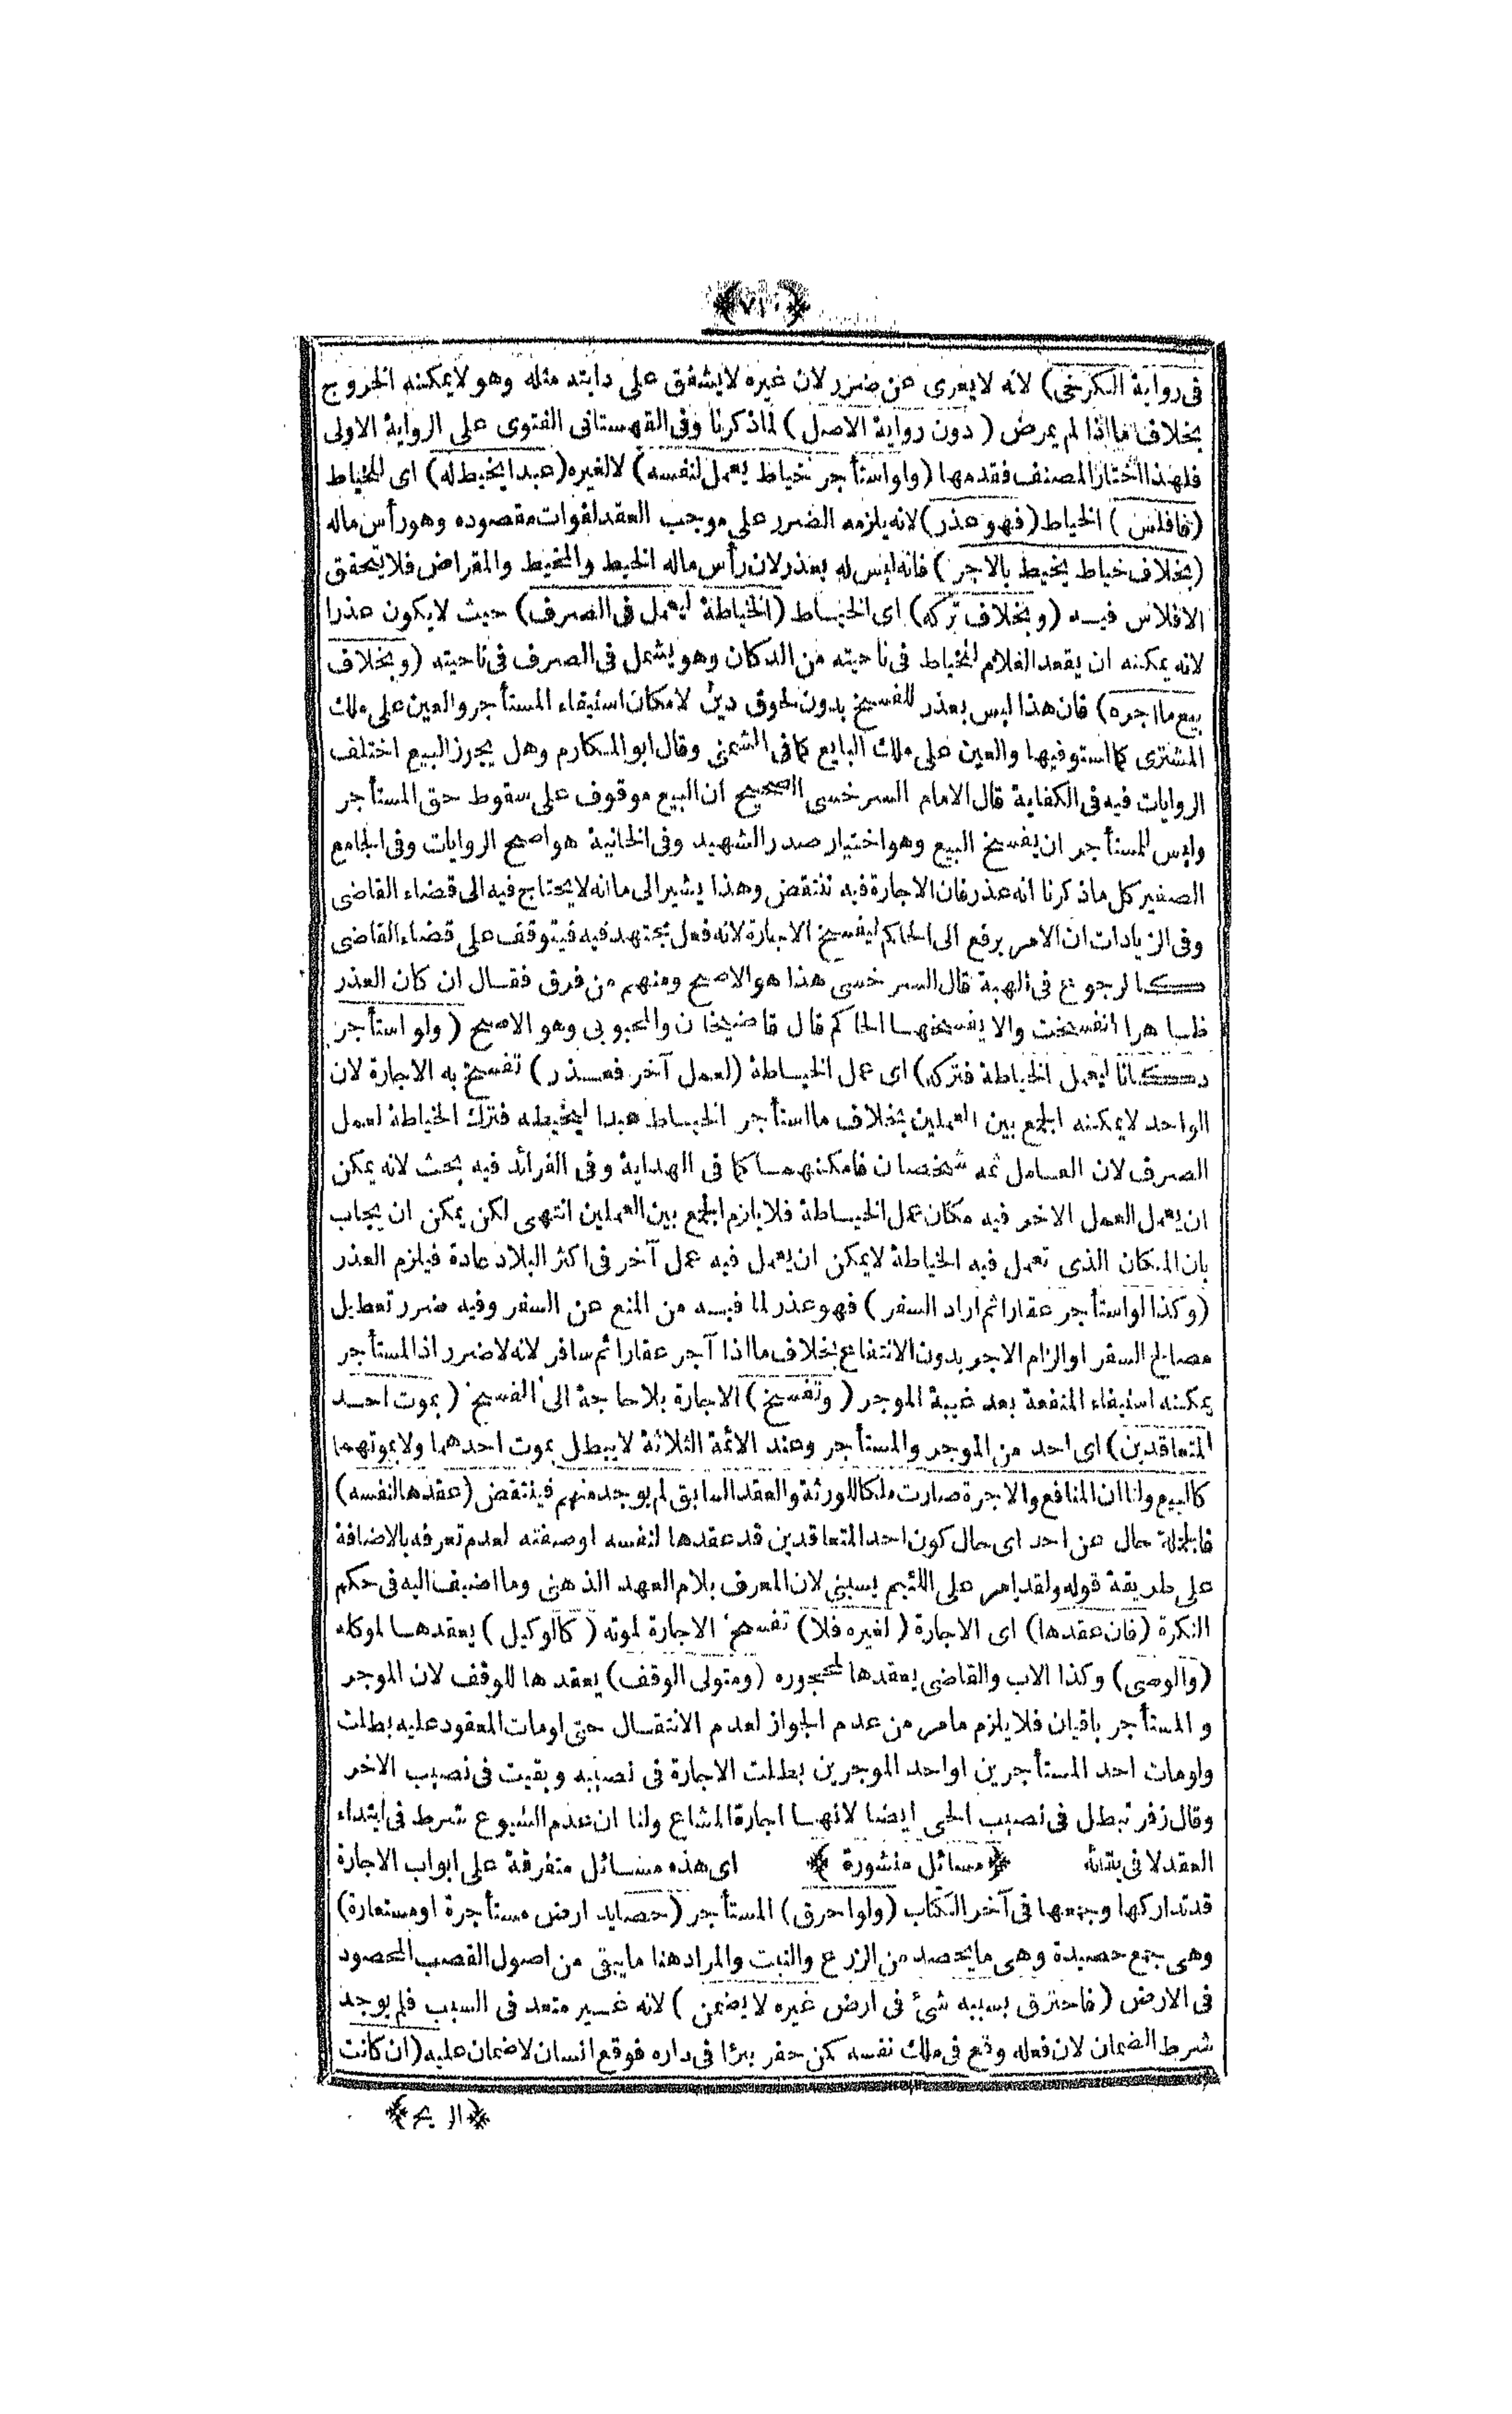 في رواية الكرخي) لانه لا يعرى عن ضرر لان غيره لا يشفق على دابته مثله وهو لا يمكنه الخروج
بخلاف ما اذا لم يمرض (دون رواية الاصل) لما ذكرنا وفي القهستاني الفتوى على الرواية الاولى
فلهذا اختار المصنف فقدمها (ولو استأجر خياط يعمل لنفسه) لا لغيره (عبدا يخيط له) اى للخياط
(فافلس) الخياط (فهو عذر) لانه يلزمه الضرر على موجب العقد لفوات مقصوده وهو رأس ماله
(بخلاف خياط يخيط بالاجر) فانه ليس له بعذر لان رأس ماله الخيط والمخيط والمقراض فلا يتحقق
الافلاس فيه (وبخلاف تركه) اى الخياط (الخياطة ليعمل في الصرف) حيث لا يكون عذرا
لانه يمكنه ان يقعد الغلام للخياط في ناحيته من الدكان وهو يشتمل في الصرف في ناحيته (وبخلاف
بيع ما اجره) فان هذا ليس بعذر للفسخ بدون لحوق دين لامكان استيفاء المستأجر والعين على ملك
المشترى كما استوفيها والعين على ملك البايع كما في الشمنى وقال ابو المكارم وهل يجوز البيع اختلف
الروايات فيه في الكفاية قال الامام السرخسى الصحيح ان البيع موقوف على سقوط حق المستأجر
وليس للمستأجر ان يفسخ البيع وهو اختيار صدر الشهيد وفي الخانية هو اصح الروايات وفي الجامع
الصغير كل ما ذكرنا انه عذر فان الاجارة فيه تنتقض وهذا يشير الى ما انه لا يحتاج فيه الى قضاء القاضى
وفي الزيادات ان الامر يرفع الى الحاكم ليفسخ الاجارة لانه فعل مجتهد فيه فيتوقف على قضاء القاضى
كالرجوع في الهبة قال السرخسى هذا هو الاصح ومنهم من فرق فقال ان كان العذر
ظاهرا انفسخت والا يفسخها الحاكم قال قاضيخان والمحبوبى وهو الاصح (ولو استأجر
دكانا ليعمل الخياطة فتركه) اى عمل الخياطة (لعمل آخر فعذر) تفسخ به الاجارة لان
الواحد لا يمكنه الجمع بين العملين بخلاف ما استأجر الخياط عبدا ليخيطه فترك الخياطة لعمل
الصرف لان العامل ثمه شخصان فامكنهما كما في الهداية وفي الفرائد فيه بحث لانه يمكن
ان يعمل العمل الاخر فيه مكان عمل الخياطة فلا يلزم الجمع بين العملين انتهى لكن يمكن ان يجاب
بان المكان الذى تعمل فيه الخياطة لا يمكن ان يعمل فيه عمل آخر في اكثر البلاد عادة فيلزم العذر
(وكذا لو استأجر عقارا ثم اراد السفر) فهو عذر لما فيه من المنع عن السفر وفيه ضرر تعطيل
مصالح السفر او الزام الاجر بدون الانتفاع بخلاف ما اذا آجر عقارا ثم سافر لانه لا ضرر اذ المستأجر
يمكنه استيفاء المنفعة بعد غيبة الموجر (وتفسخ) الاجارة بلا حاجة الى الفسخ (بموت احد
المتعاقدين) اى احد من الموجر والمستأجر وعند الائمة الثلاثة لا يبطل بموت احدهما ولا بموتهما
كالبيع ولنا ان المنافع والاجرة صارت ملكا للورثة والعقد السابق لم يوجد منهم فينتقض (عقدها لنفسه)
فالجملة حال عن احد اى حال كون احد المتعاقدين قد عقدها لنفسه او صفته لعدم تعرفه بالاضافة
على طريقة قوله ولقد امر على اللئيم يسبنى لان المعرف بلام العهد الذهنى وما اضيف اليه في حكم
النكرة (فان عقدها) اى الاجارة (لغيره فلا) تفسخ الاجارة لموته (كالوكيل) يعقدها لموكله
(والوصى) وكذا الاب والقاضى يعقدها لمحجوره (ومتولى الوقف) يعقدها للوقف لان الموجر
والمستأجر باقيان فلا يلزم ما مر من عدم الجواز لعدم الانتقال حتى لو مات المعقود عليه بطلت
ولو مات احد المستأجرين او احد الموجرين بطلت الاجارة في نصيبه وبقيت في نصيب الاخر
وقال زفر تبطل في نصيب الحى ايضا لانها اجارة المشاع ولنا ان عدم الشيوع شرط في ابتداء
العقد لا في بقائه ﴿مسائل منثورة﴾ اى هذه مسائل متفرقة على ابواب الاجارة
قد تداركها وجمعها في آخر الكتاب (ولو احرق) المستأجر (حصايد ارض مستأجرة او مستعارة)
وهى جمع حصيدة وهى ما يحصد من الزرع والنبت والمراد هنا ما يبقى من اصول القصب المحصود
في الارض (فاحترق بسببه شئ في ارض غيره لا يضمن) لانه غير متعد في السبب فلم يوجد
شرط الضمان لان فعله وقع في ملك نفسه كمن حفر بئرا في داره فوقع انسان لا ضمان عليه (ان كانت
﴿الريح﴾